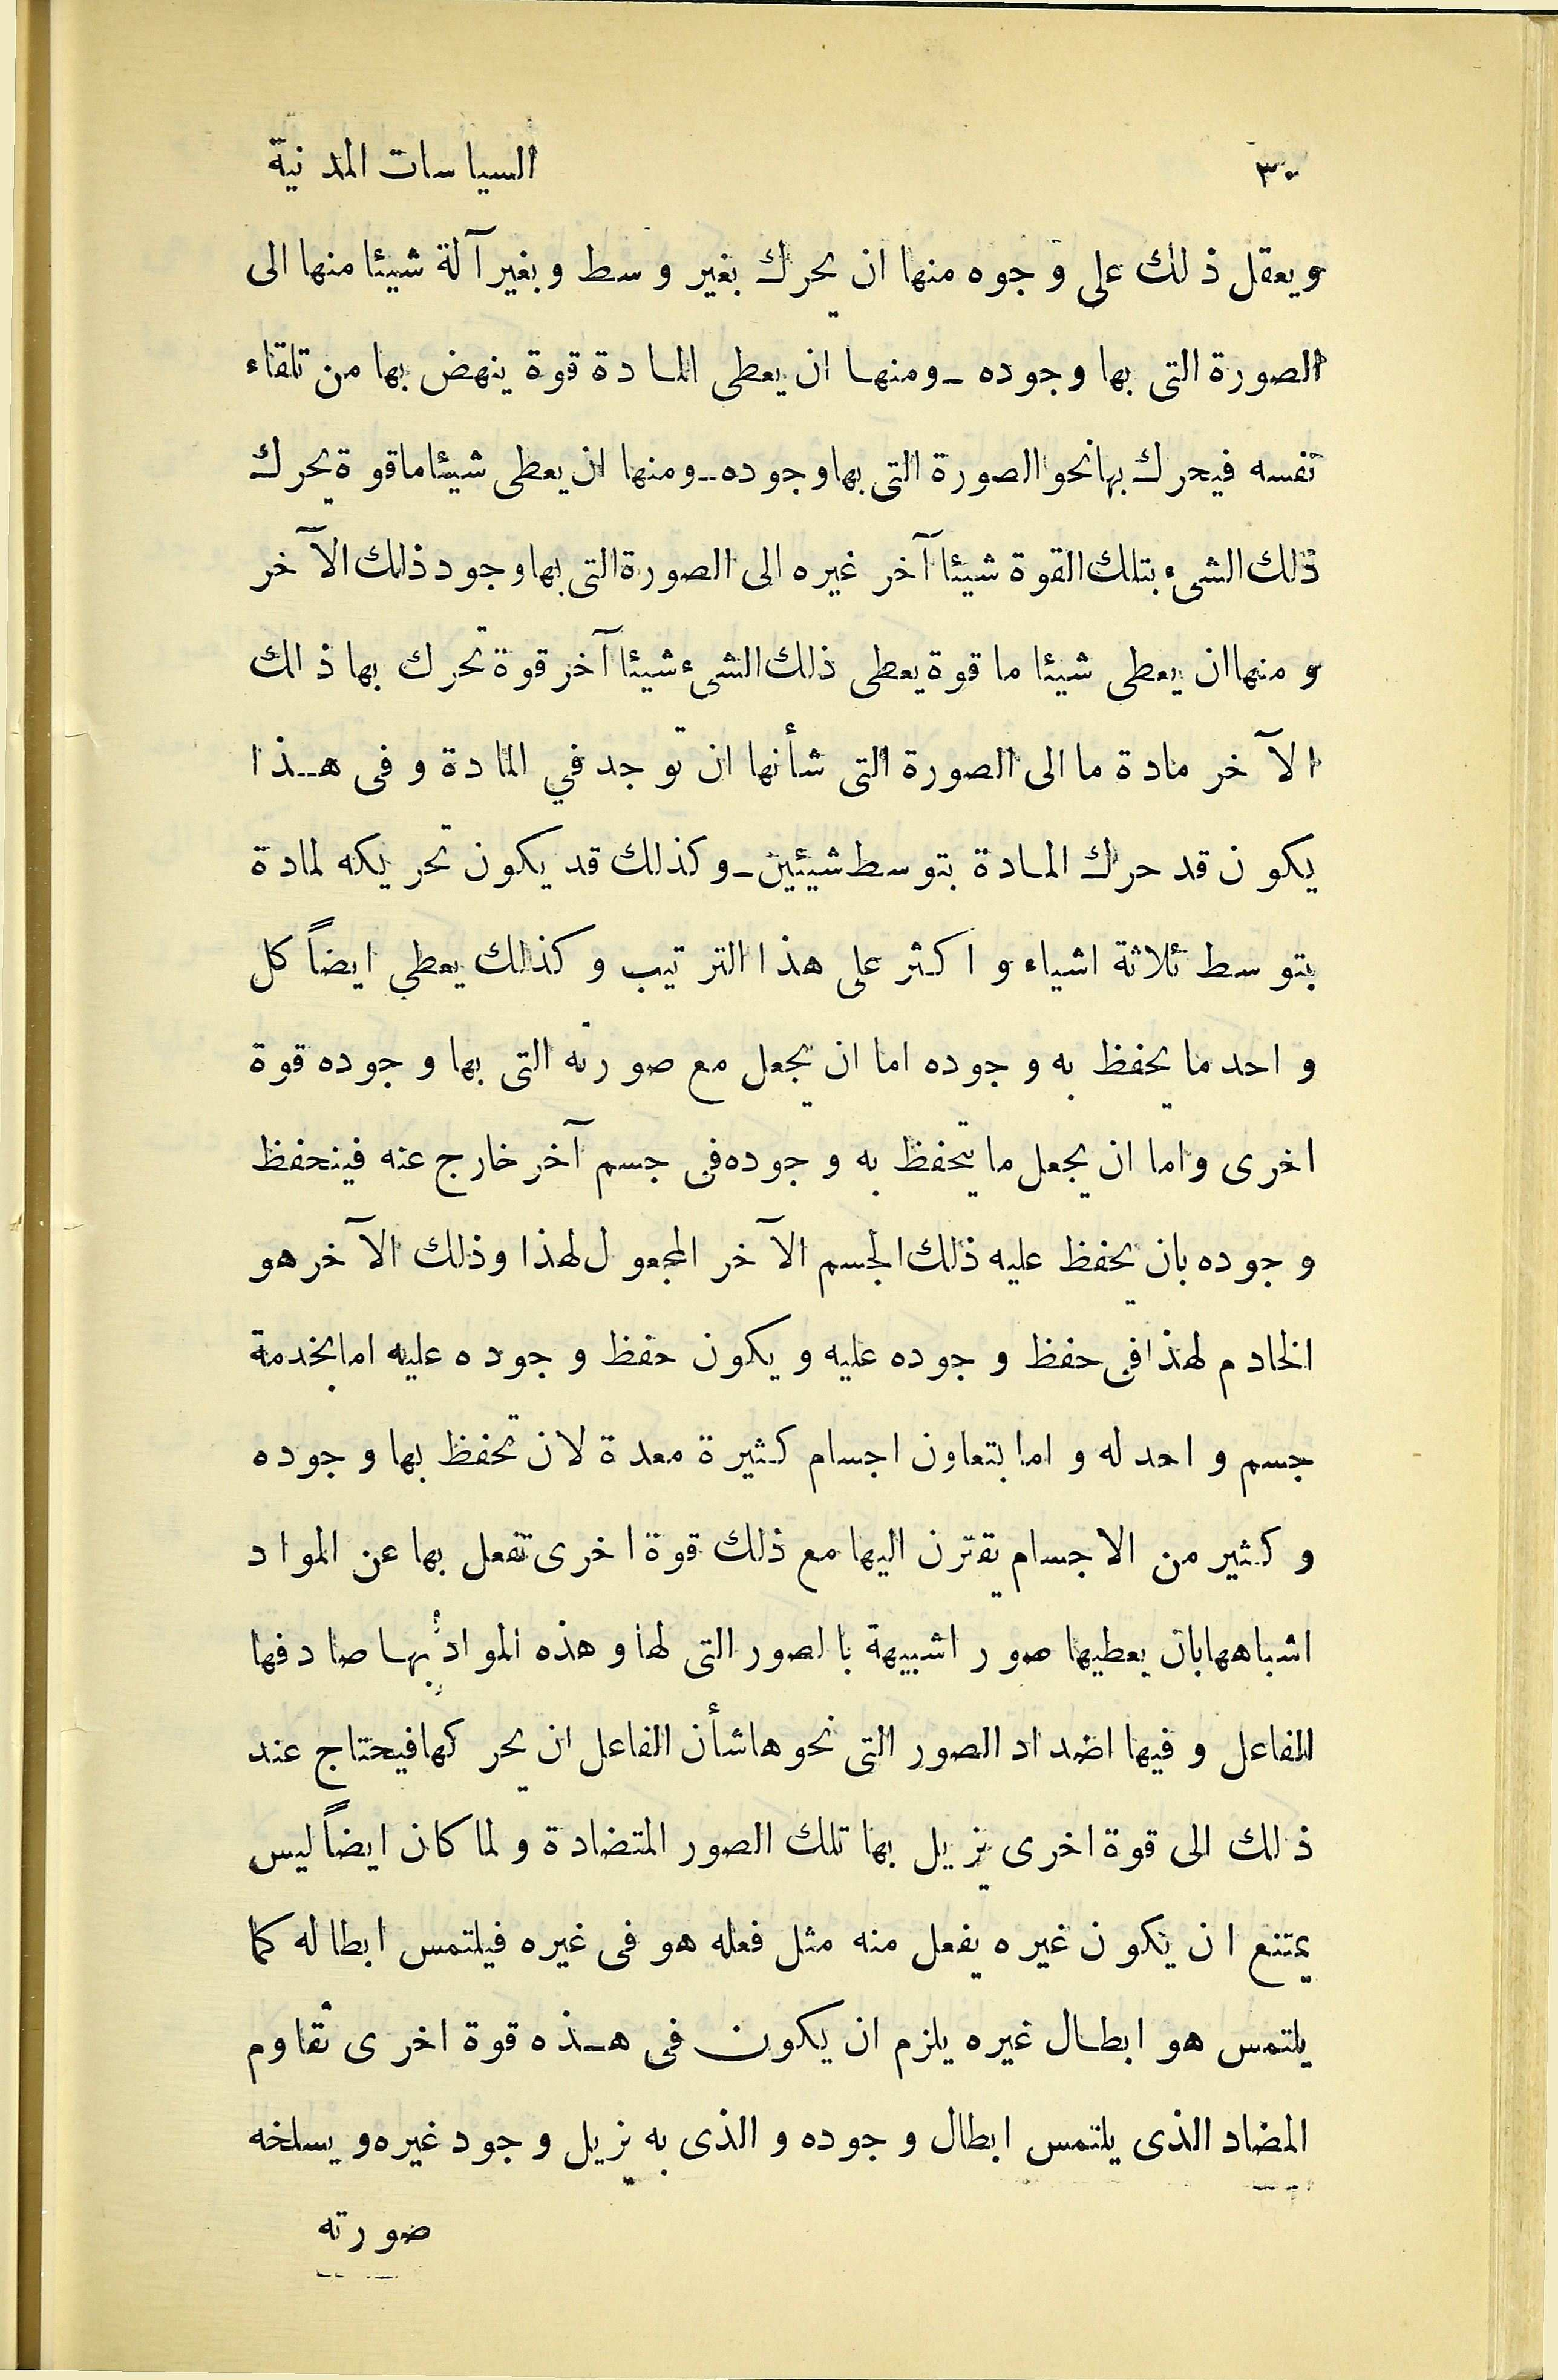 ٣٠ السياسات المدنية
ويعقل ذلك على وجوه منها ان يحرك بغير وسط وبغير آلة شيئا منها الى
الصورة التى بها وجوده ــ ومنها ان يعطى المادة قوة ينهض بها من تلقاء
نفسه فيحرك بها نحو الصورة التى بها وجوده ــ ومنها ان يعطى شيئا ما قوة يحرك
ذلك الشىء بتلك القوة شيئا آخر غيره الى الصورة التى بها وجود ذلك الآخر
ومنها ان يعطى شيئا ما قوة يعطى ذلك الشىء شيئا آخر قوة تحرك بها ذلك
الآخر مادة ما الى الصورة التى شأنها ان توجد في المادة وفى هذا
يكون قد حرك المادة بتوسط شيئين ــ وكذلك قد يكون تحريكه لمادة
بتوسط ثلاثة اشياء واكثر على هذا الترتيب وكذلك يعطي ايضاً كل
واحد ما يحفظ به وجوده اما ان يجعل مع صورته التى بها وجوده قوة
اخرى واما ان يجعل ما يتحفظ به وجوده فى جسم آخر خارج عنه فينحفظ
وجوده بان يحفظ عليه ذلك الجسم الآخر المجعول لهذا وذلك الآخر هو
الخادم لهذا فى حفظ وجوده عليه ويكون حفظ وجوده عليه اما بخدمة
جسم واحد له واما بتعاون اجسام كثيرة معدة لان تحفظ بها وجوده
وكثير من الاجسام يقترن اليها مع ذلك قوة اخرى تفعل بها عن المواد
اشباهها بان يعطيها صورا شبيهة بالصور التى لها وهذه المواد بها صادفها
الفاعل وفيها اضداد الصور التى نحوها شأن الفاعل ان يحركها فيحتاج عند
ذلك الى قوة اخرى يزيل بها تلك الصور المتضادة ولما كان ايضاً ليس
يمتنع ان يكون غيره يفعل منه مثل فعله هو فى غيره فيلتمس ابطاله كما
يلتمس هو ابطال غيره يلزم ان يكون فى هذه قوة اخرى تقاوم
المضاد الذى يلتمس ابطال وجوده والذى به يزيل وجود غيره ويسلخه
صورته